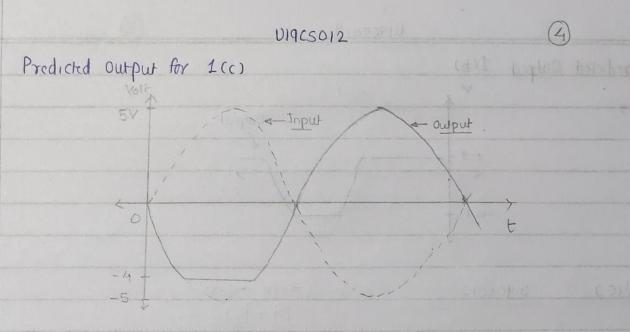 U19CS012
4
Predicted Output for 1(c)
Volt
5V
Input
Output
0
t
-4
-5